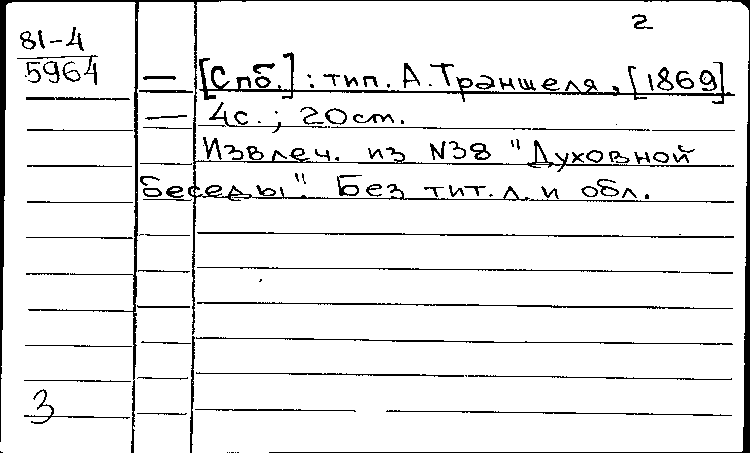 2
81-4
5964
— [Спб.] : тип. А. Траншеля, [1869].
— 4с.; 20см.
Извлеч. из N38 "Духовной
беседы". Без тит. л. и обл.
3